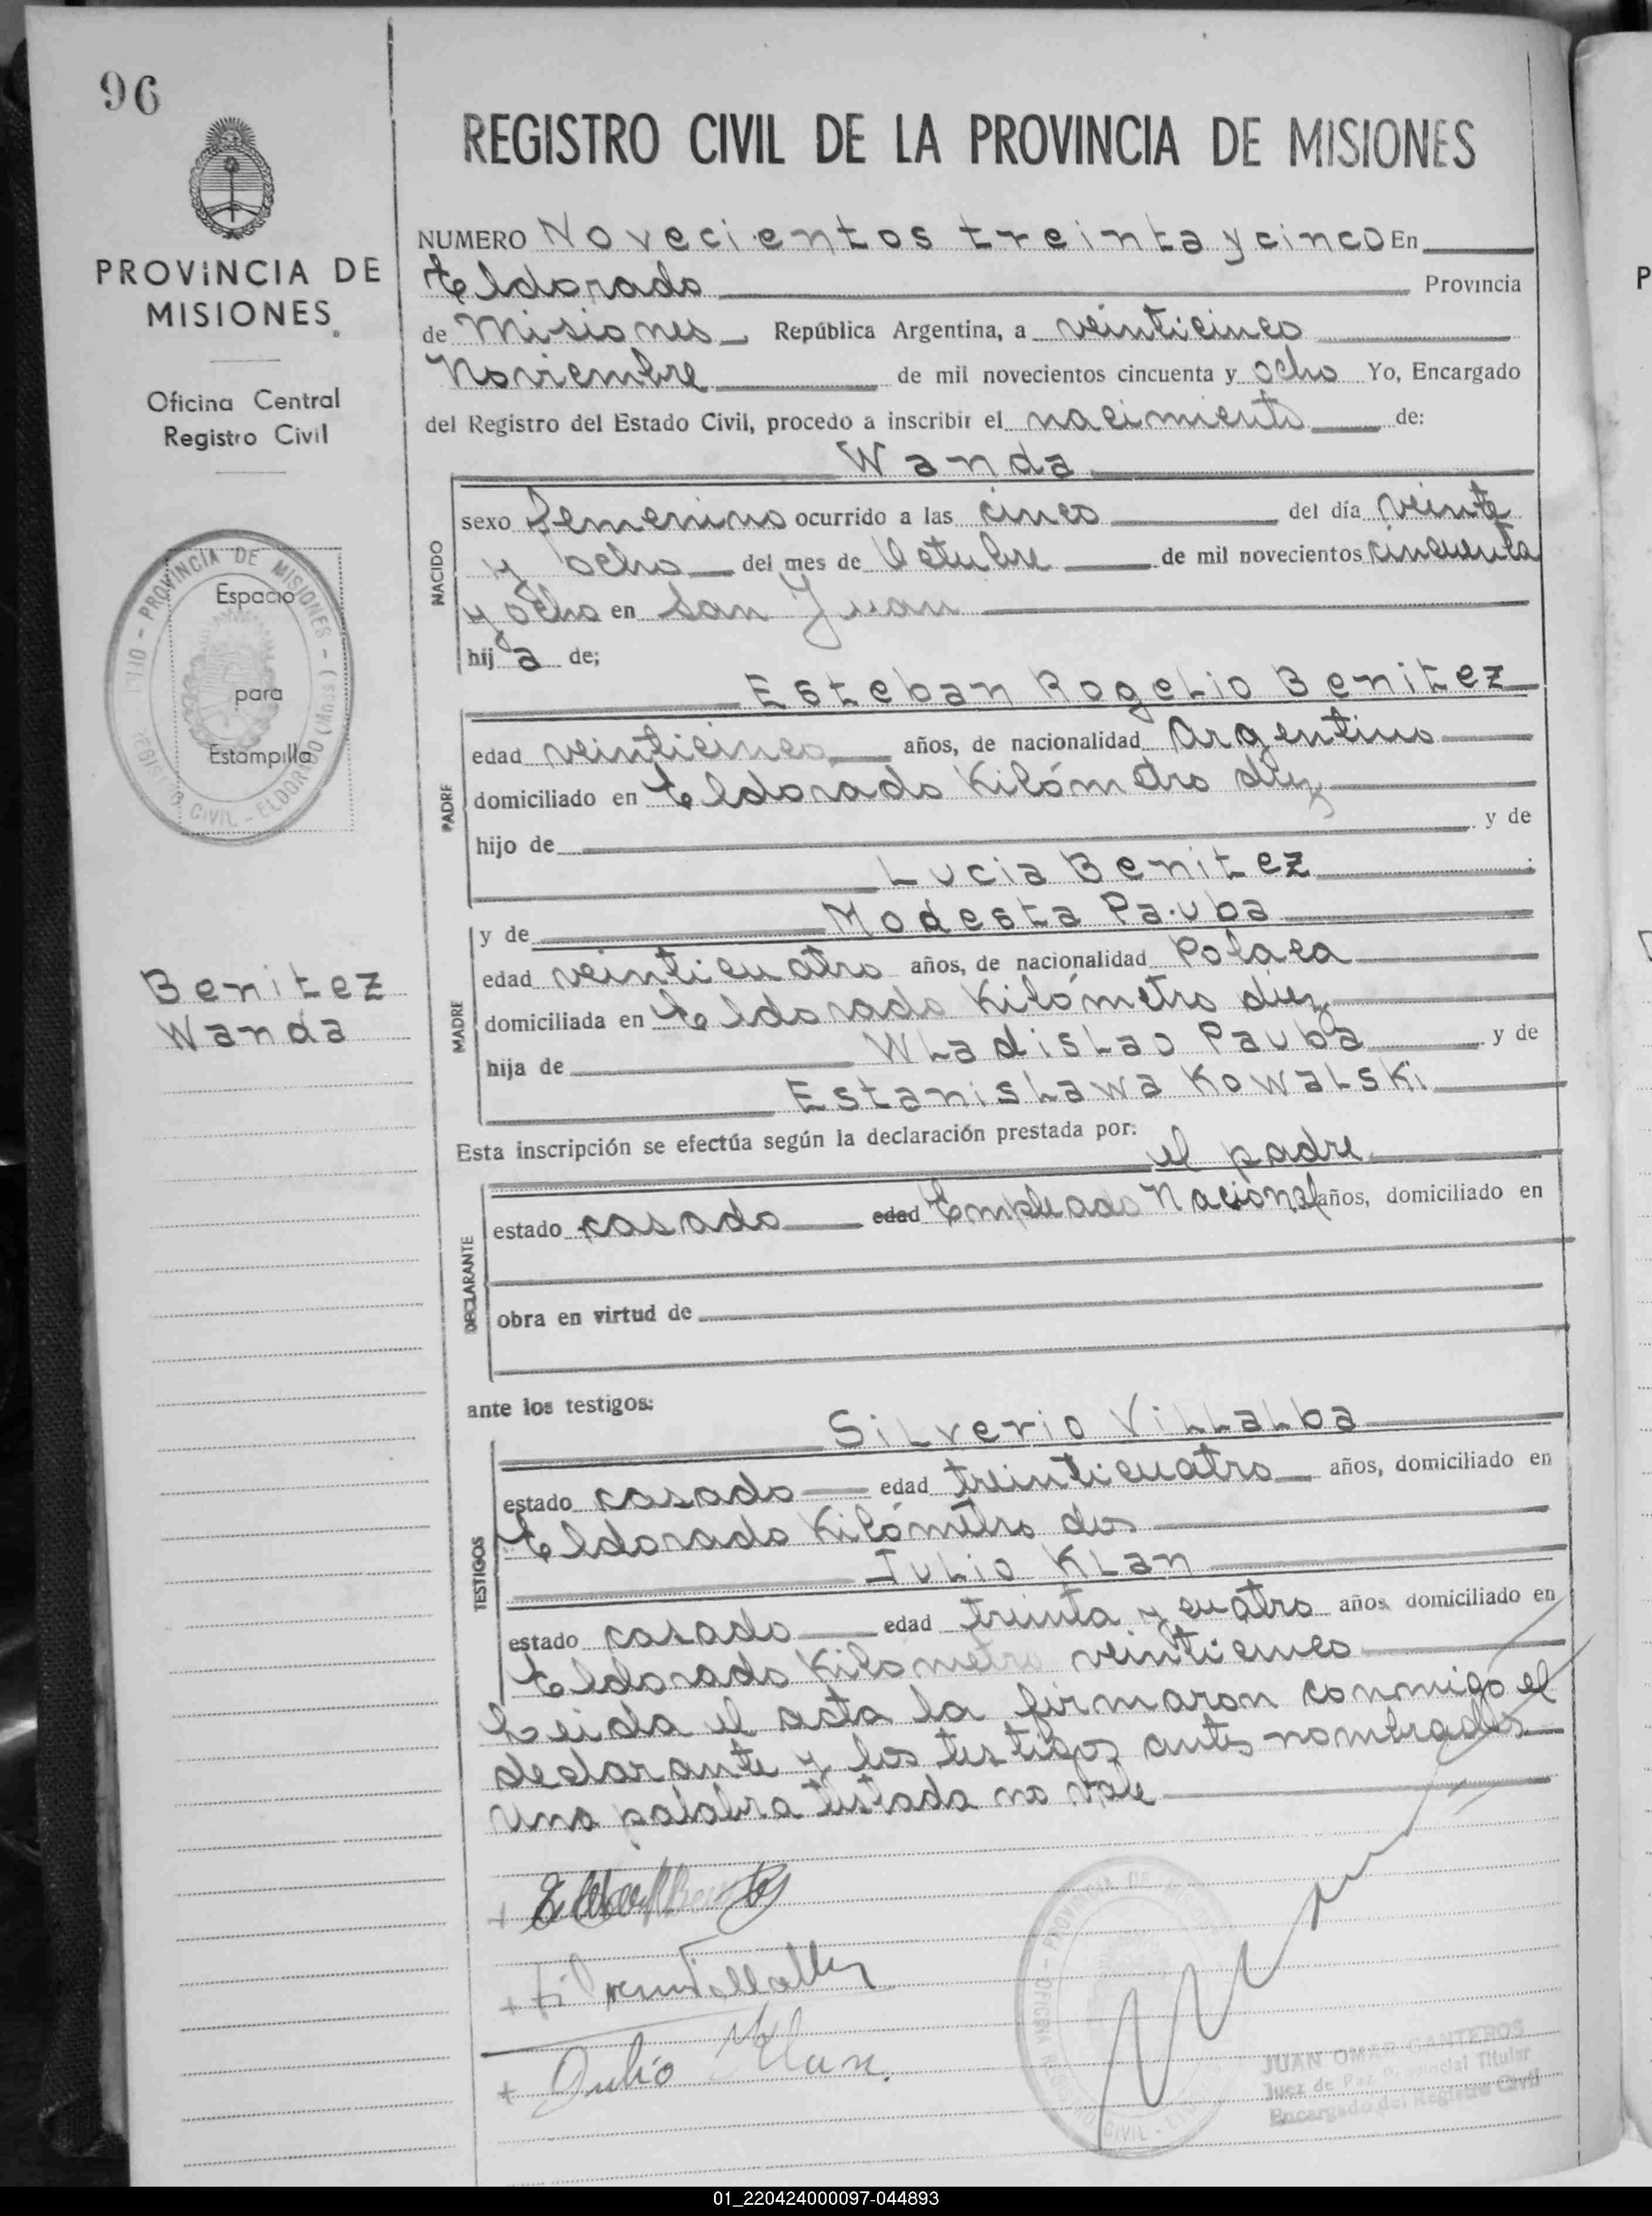 96
PROVINCIA DE
MISIONES.
Oficina Central
Registro Civil
PROVINCIA DE MISIONES - (Mnes)
Espacio
para
Estampilla
REGISTRO CIVIL - ELDORADO
Benitez
Wanda
REGISTRO CIVIL DE LA PROVINCIA DE MISIONES
NUMERO Novecientos treinta y cinco En
Eldorado Provincia
de Misiones República Argentina, a veinticinco
Noviembre de mil novecientos cincuenta y ocho Yo, Encargado
del Registro del Estado Civil, procedo a inscribir el nacimiento de:
Wanda
NACIDO
sexo femenino ocurrido a las cinco del día veinte
y ocho del mes de Octubre de mil novecientos cincuenta
y ocho en San Juan
hij a de;
Esteban Rogelio Benitez
PADRE
edad veinticinco años, de nacionalidad Argentino
domiciliado en Eldorado Kilómetro diez
hijo de y de
Lucia Benitez
y de Modesta Pauba
MADRE
edad veinticuatro años, de nacionalidad Polaca
domiciliada en Eldorado Kilómetro diez
hija de Wladislao Pauba y de
Estanislawa Kowalski
Esta inscripción se efectúa según la declaración prestada por:
el padre
DECLARANTE
estado casado edad Empleado Nacional años, domiciliado en
obra en virtud de
ante los testigos:
Silverio Villalba
TESTIGOS
estado casado edad treinticuatro años, domiciliado en
Eldorado Kilómetro dos
Julio Klan
estado casado edad treinta y cuatro años domiciliado en
Eldorado Kilometro veinticinco
Leida el acta la firmaron conmigo el
declarante y los testigos antes nombrados
Una palabra testada no vale
Julio Klan.
JUAN OMAR GANTEROS
Juez de Paz Provincial Titular
Encargado del Registro Civil
01_220424000097-044893